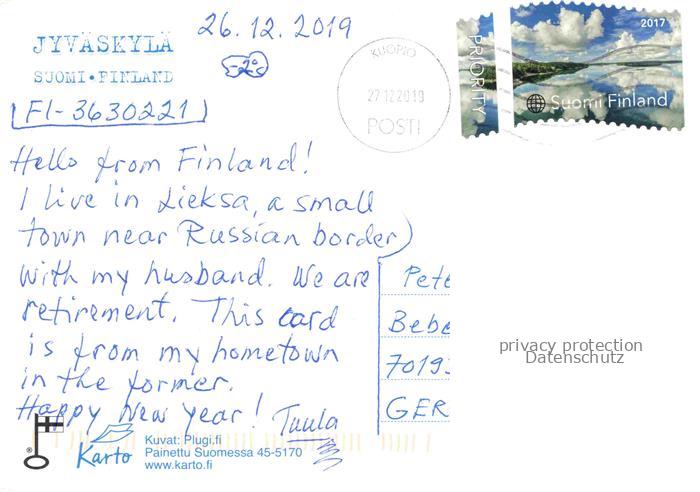 26.12.2019
JYVÄSKYLÄ
SUOMI • FINLAND
-2°
FI-3630221
KUOPIO
27.12.2019
POSTI
PRIORITY
2017
Suomi Finland
Hello from Finland!
I live in Lieksa, a small
town near Russian border
with my husband. We are
retirement. This card
is from my hometown
in the former.
Happy New Year! Tuula
Pete
Bebe
7019
GER
privacy protection
Datenschutz
Karto
Kuvat: Plugi.fi
Painettu Suomessa 45-5170
www.karto.fi